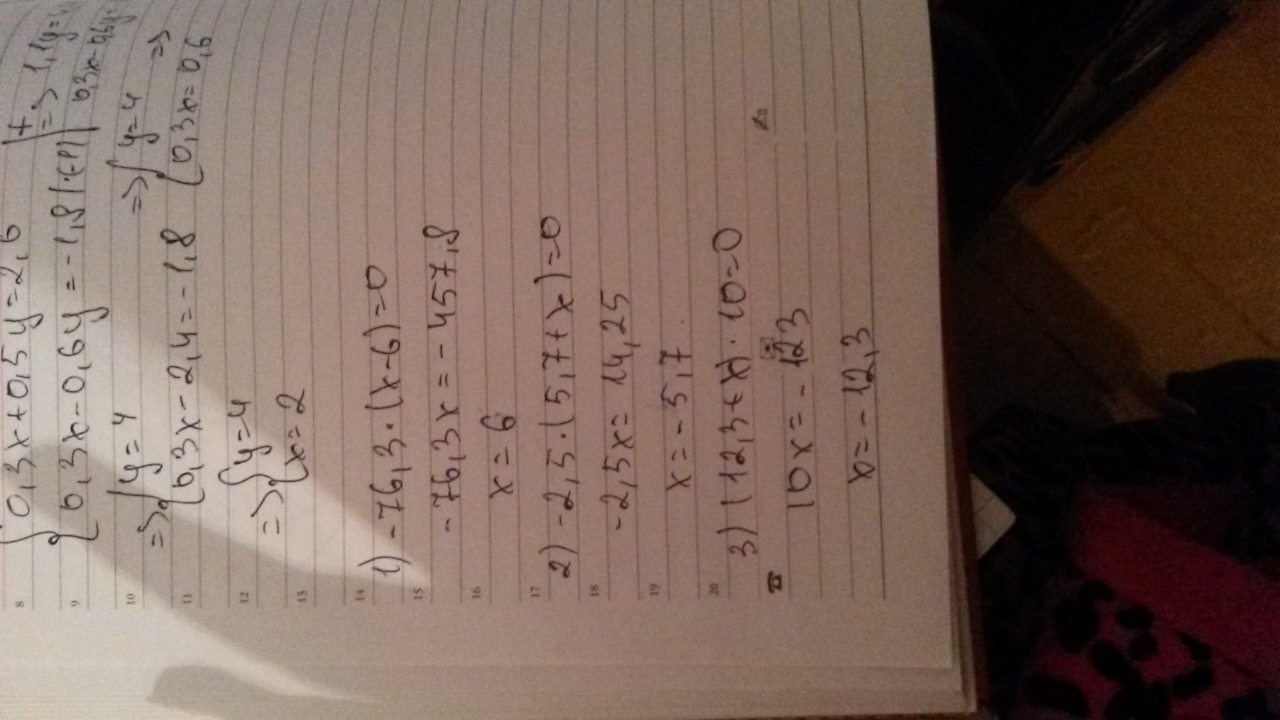 8 { 0,3x+0,5y=2,6 | + => 1,1y=
9 { 0,3x-0,6y=-1,8 |·(-1) 0,3x-0,6y=
10 => { y=4 => { y=4 =>
11 { 0,3x-2,4=-1,8 { 0,3x=0,6
12 => { y=4
13 { x=2
14 1) -76,3·(x-6)=0
15 -76,3x=-457,8
16 x=6
17 2) -2,5·(5,7+x)=0
18 -2,5x=14,25
19 x=-5,7
20 3) (12,3+x)·10=0
10x=-123
x=-12,3